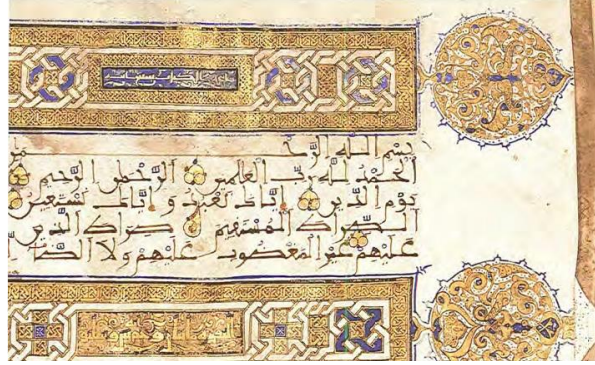 بِسْمِ اللَّهِ الرَّحْمَنِ
الْحَمْدُ لِلَّهِ رَبِّ الْعَالَمِينَ الرَّحْمَنِ الرَّحِيمِ
يَوْمِ الدِّينِ إِيَّاكَ نَعْبُدُ وَإِيَّاكَ نَسْتَعِينُ
الصِّرَاطَ الْمُسْتَقِيمَ صِرَاطَ الَّذِينَ
عَلَيْهِمْ غَيْرِ الْمَغْضُوبِ عَلَيْهِمْ وَلَا الضَّا